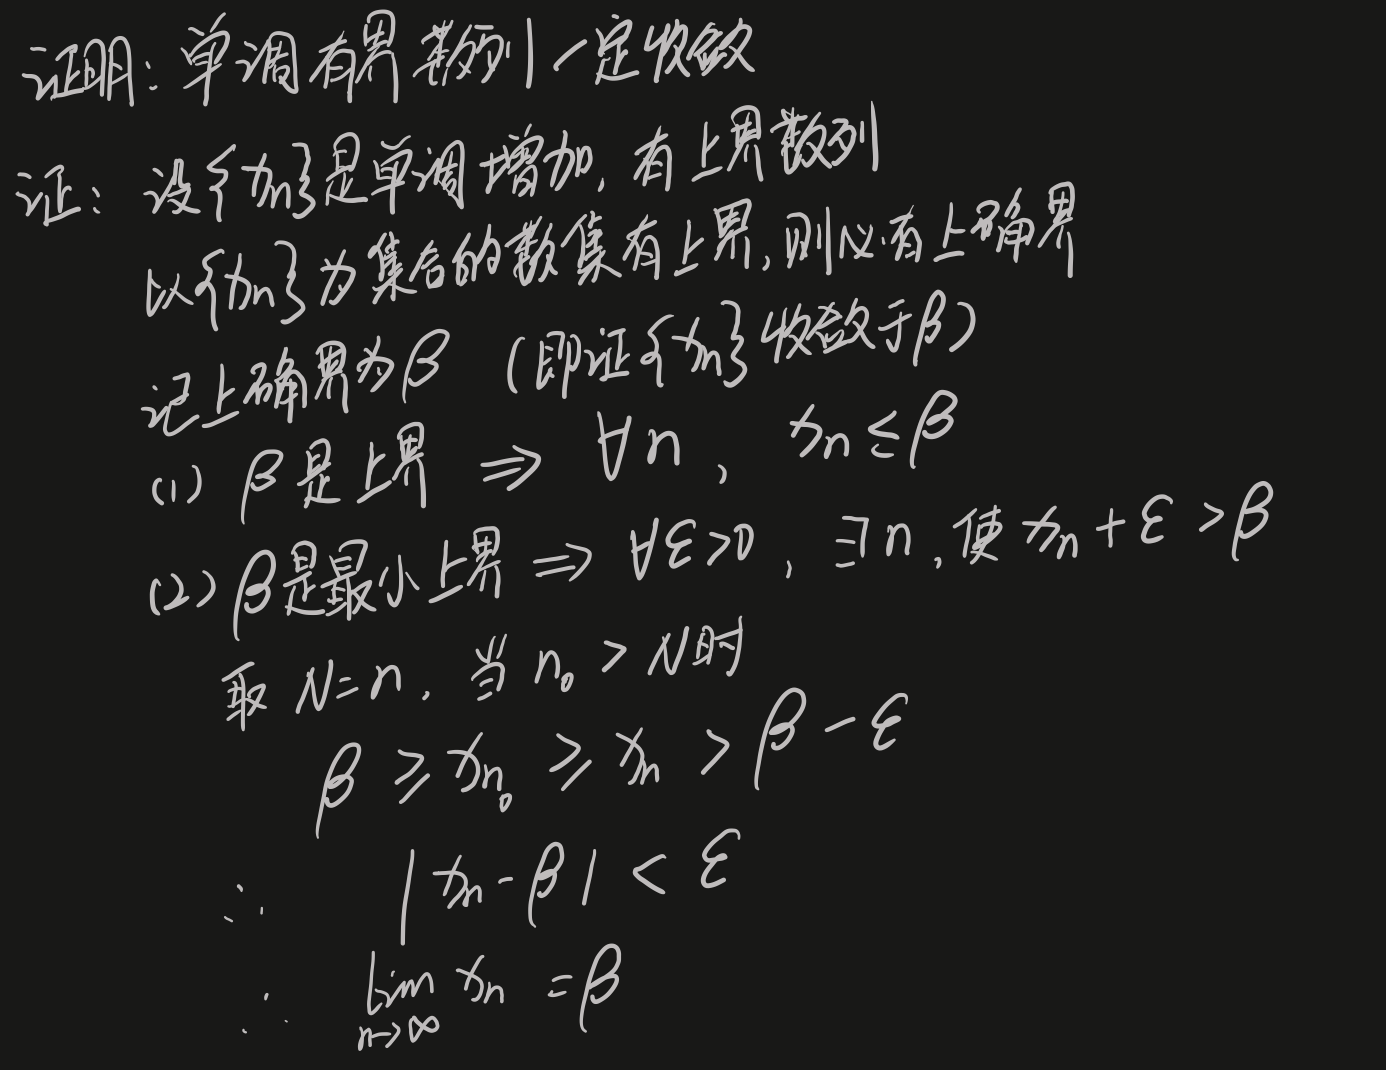 证明：单调有界数列一定收敛
证：设{xn}是单调增加，有上界数列
以{xn}为集合的数集有上界，则必有上确界
记上确界为β （即证{xn}收敛于β）
(1) β是上界 ⇒ ∀n， xn ≤ β
(2) β是最小上界 ⇒ ∀ε>0，∃n，使 xn + ε > β
取 N=n，当 n₀ > N时
β ≥ xn₀ ≥ xn > β - ε
∴ |xn - β| < ε
∴ lim n→∞ xn = β